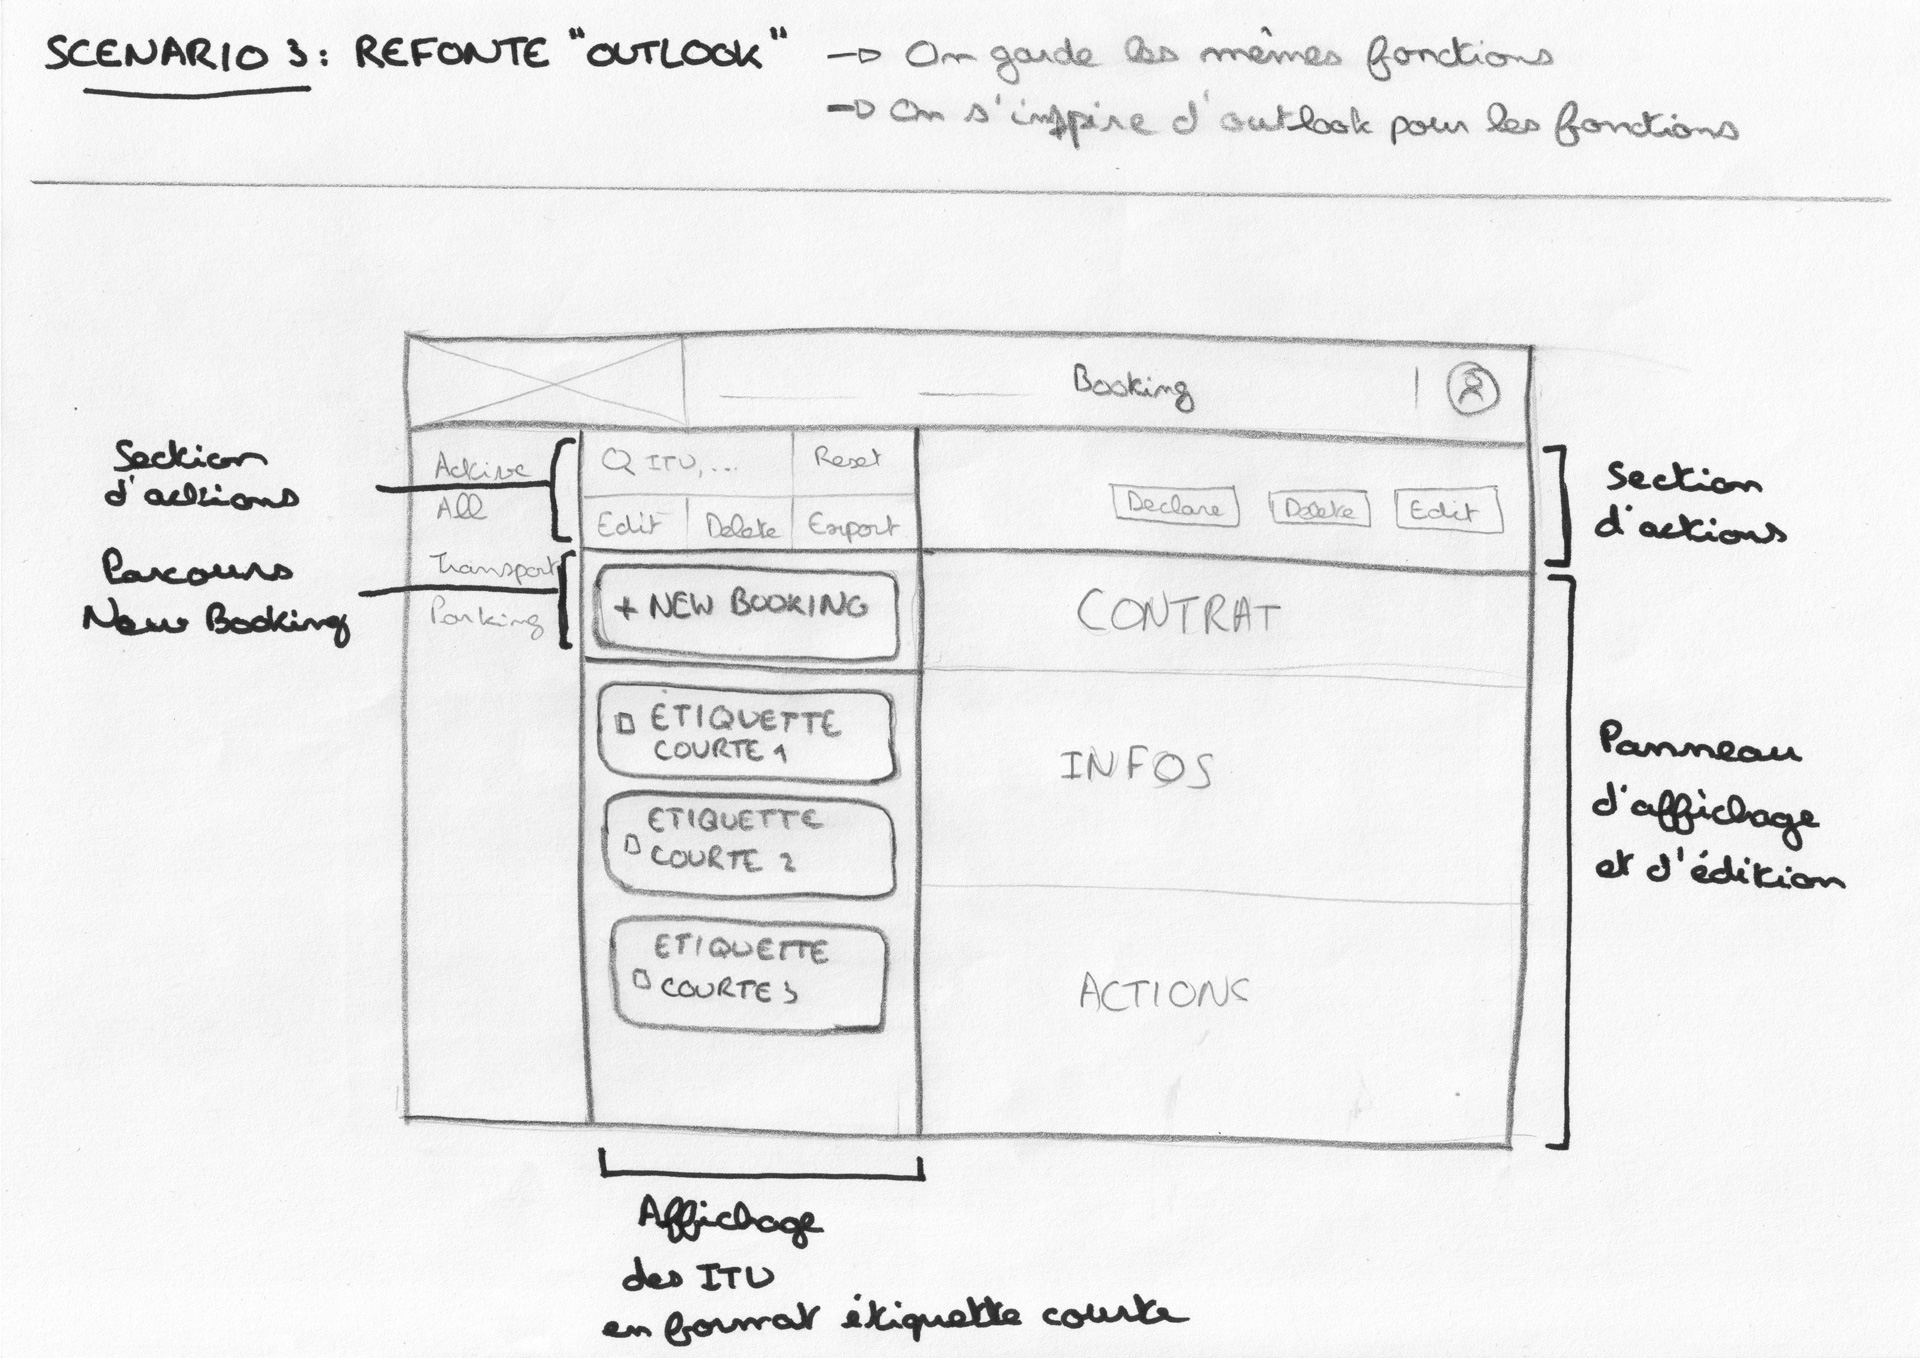 SCENARIO 3: REFONTE "OUTLOOK"
-> On garde les mêmes fonctions
-> On s'inspire d'outlook pour les fonctions
Booking
Section
d'actions
Active
All
Transport
Parking
Q ITU,...
Reset
Edit
Delete
Export
Declare
Delete
Edit
Section
d'actions
Parcours
New Booking
+ NEW BOOKING
ETIQUETTE
COURTE 1
ETIQUETTE
COURTE 2
ETIQUETTE
COURTE 3
CONTRAT
INFOS
ACTIONS
Panneau
d'affichage
et d'édition
Affichage
des ITU
en format étiquette courte